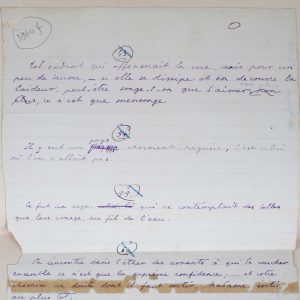 3900 f
Cet endroit qui offensait la vue, mais pour un
peu de brume, — si elle se dissipe et en découvre la
laideur, peut-être songe-t-on que s'aimer,
ce n'est que mensonge.
Il y eut un pays charmant, naguère, c'est celui
où l'on n'allait pas.
Ce fut un sage, qui ne contemplait des
que leur image, au fil de l'eau.
On rencontre dans l'éther des amants à qui le coucher
ensemble ce n'est que la suprême confidence, — et votre
un doute dont il faut sortir, Madame, sortir
au plus tôt.